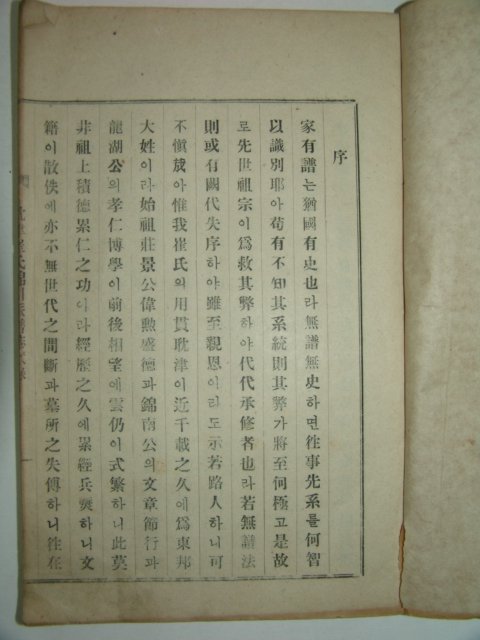 序
家有譜는猶國有史也라無譜無史하면往事先系를何智
以識別耶아苟有不知其系統則其弊가將至何極고是故
로先世祖宗이爲救其弊하야代代承修者也라若無譜法
則或有闕代失序하야雖至親恩이라도示若路人하니可
不愼哉아惟我崔氏의用貫耽津이近千載之久에爲東邦
大姓이라始祖莊景公偉勲盛德과錦南公의文章節行과
龍湖公의孝仁博學이前後相望에雲仍이式繁하니此莫
非祖上積德累仁之功이라經歷之久에累經兵燹하니文
籍이散佚에亦不無世代之間斷과墓所之失傳하니往在